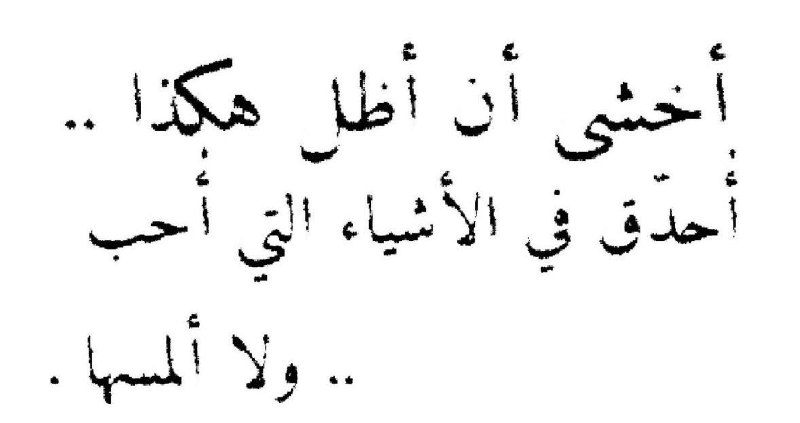 أخشى أن أظل هكذا ..
أُحدّق في الأشياء التي أُحب
.. ولا ألمسها .